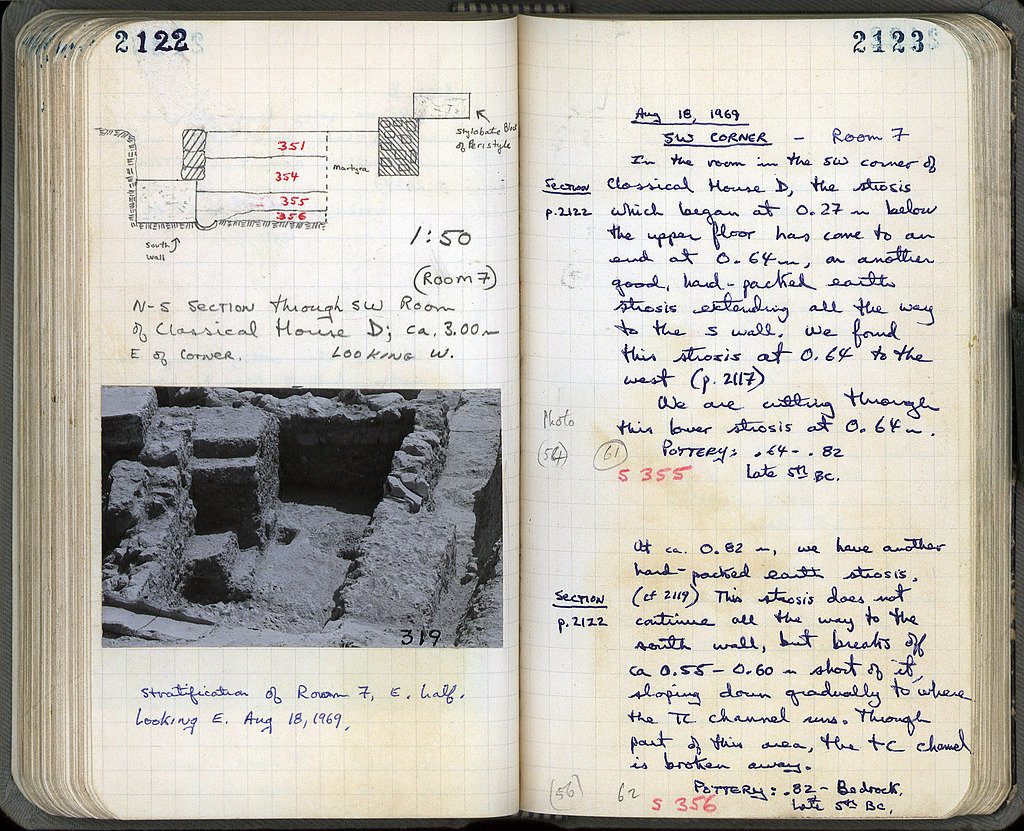 2122
351
354
355
356
Martyra
Stylobate Block
of Peristyle
South
Wall
1:50
(Room 7)
N-S Section through SW Room
of Classical House D; ca. 3.00 m
E of Corner. Looking W.
319
Stratification of Room 7, E. half.
Looking E. Aug 18, 1969.
2123
Aug 18, 1969
SW CORNER - Room 7
In the room in the SW corner of
Section Classical House D, the strosis
p.2122 which began at 0.27 m below
the upper floor has come to an
end at 0.64 m, on another
good, hard-packed earth
strosis extending all the way
to the S wall. We found
this strosis at 0.64 to the
west (p. 2117)
We are cutting through
Photo this lower strosis at 0.64 m.
(54) (61) Pottery: .64 - .82
S 355 Late 5th BC.
At ca. 0.82 m, we have another
hard-packed earth strosis.
Section (cf 2119) This strosis does not
p.2122 continue all the way to the
south wall, but breaks off
ca 0.55 - 0.60 m short of it,
sloping down gradually to where
the TC channel runs. Through
part of this area, the TC channel
is broken away.
(56) 62 Pottery: .82 - Bedrock.
S 356 Late 5th BC.